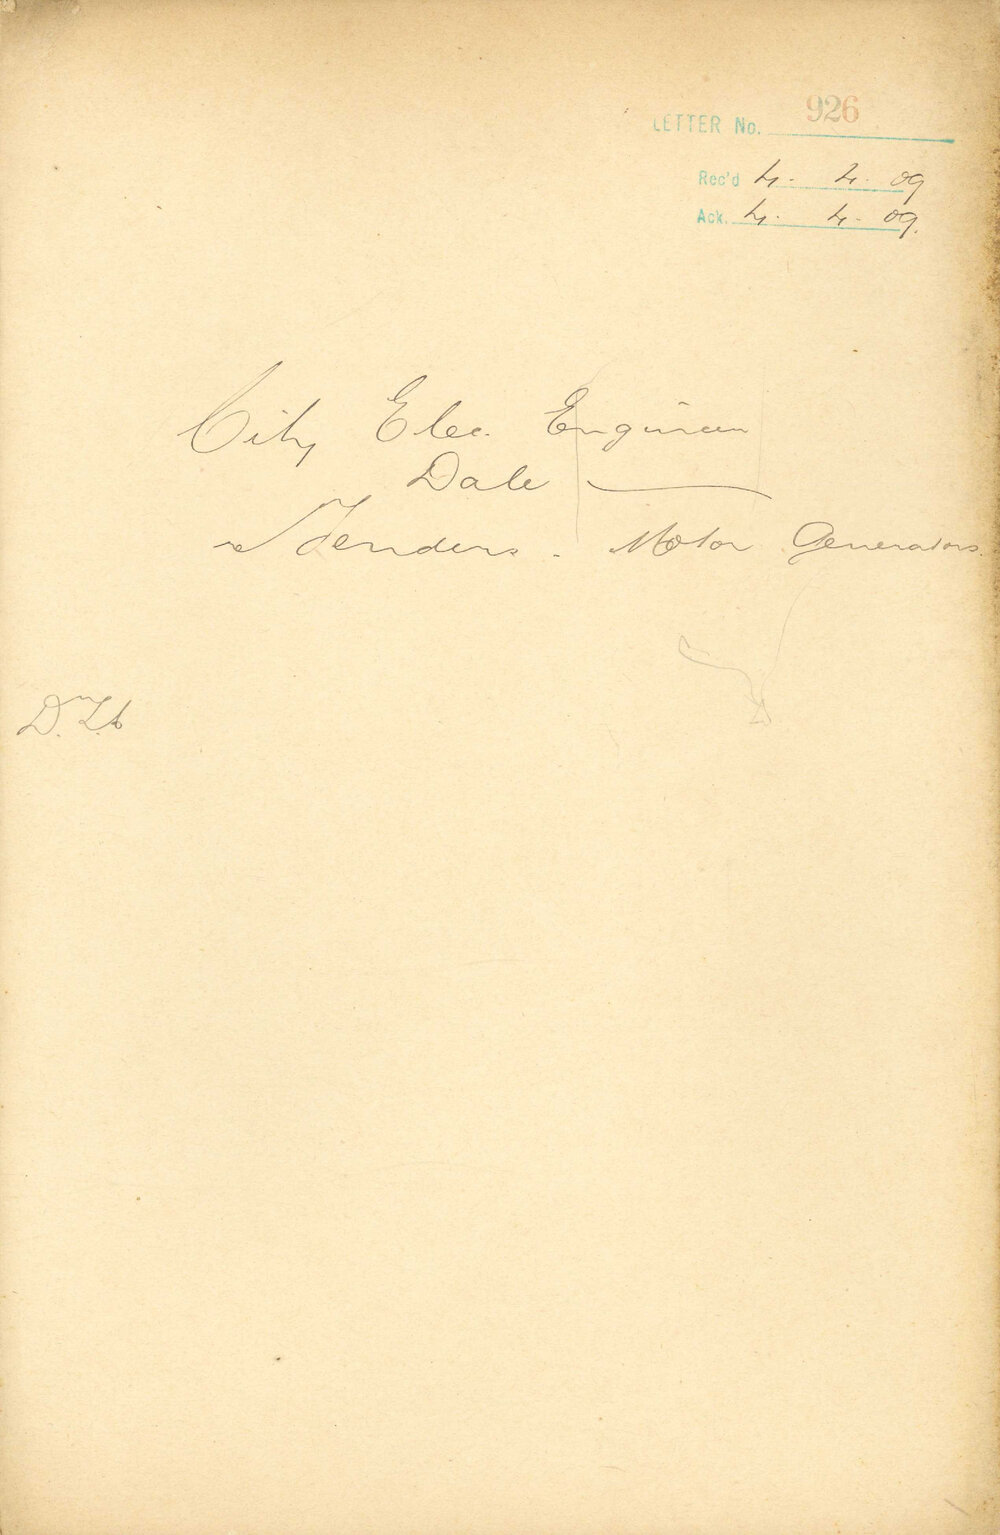 LETTER No. 926
Rec'd 4. 4. 09
Ack. 4. 4. 09.
City Elec. Engineer
Dale
re Tenders. Motor Generators.